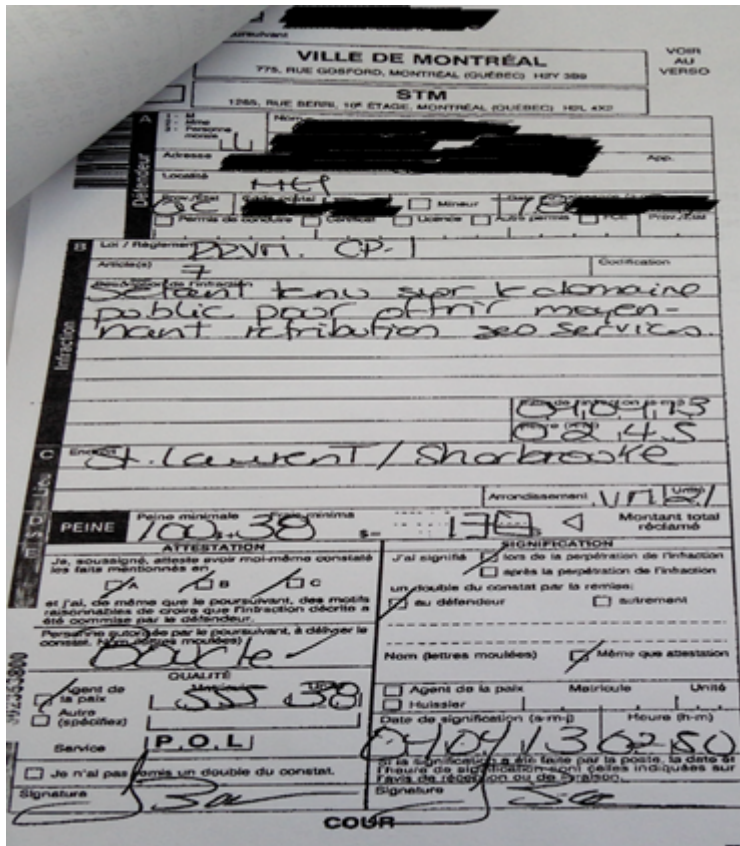 VOIR
AU
VERSO
VILLE DE MONTRÉAL
775, RUE GOSFORD, MONTRÉAL (QUÉBEC) H2Y 3B9
STM
1265, RUE BERRI, 10e ÉTAGE, MONTRÉAL (QUÉBEC) H2L 4X2
A
Défendeur
Nom
Adresse
App.
Localité
Mtl
Prov./État
QC
Mineur
Permis de conduire
Certificat
Licence
Autre permis
Prov./État
B
Infraction
Loi / Règlement
RRVM. CP-1
Article(s)
7
Codification
Description de l'infraction
S'étant tenu sur le domaine
public pour offrir moyen-
nant rétribution seo services
04 04 13
02 45
C
Endroit
St. Laurent / Sherbrooke
Arrondissement
Unité
PEINE
Peine minimale
Frais minima
100 $ + 38 $ =
138
Montant total
réclamé
ATTESTATION
Je, soussigné, atteste avoir moi-même constaté
les faits mentionnés en
A B C
et j'ai, de même que le poursuivant, des motifs
raisonnables de croire que l'infraction décrite a
été commise par le défendeur.
Personne autorisée par le poursuivant, à délivrer le
constat. Nom (lettres moulées)
QUALITÉ
Agent de
la paix
Autre
(spécifiez)
Service
P.O.L
Je n'ai pas remis un double du constat.
Signature
SIGNIFICATION
J'ai signifié
lors de la perpétration de l'infraction
après la perpétration de l'infraction
un double du constat par la remise:
au défendeur
autrement
Nom (lettres moulées)
Même que attestation
Agent de la paix
Matricule
Unité
Huissier
Date de signification (a-m-j)
Heure (h-m)
04 04 13 02 50
Si la signification a été faite par la poste, la date et
l'heure de signification sont celles indiquées sur
l'avis de réception ou de livraison.
Signature
COUR